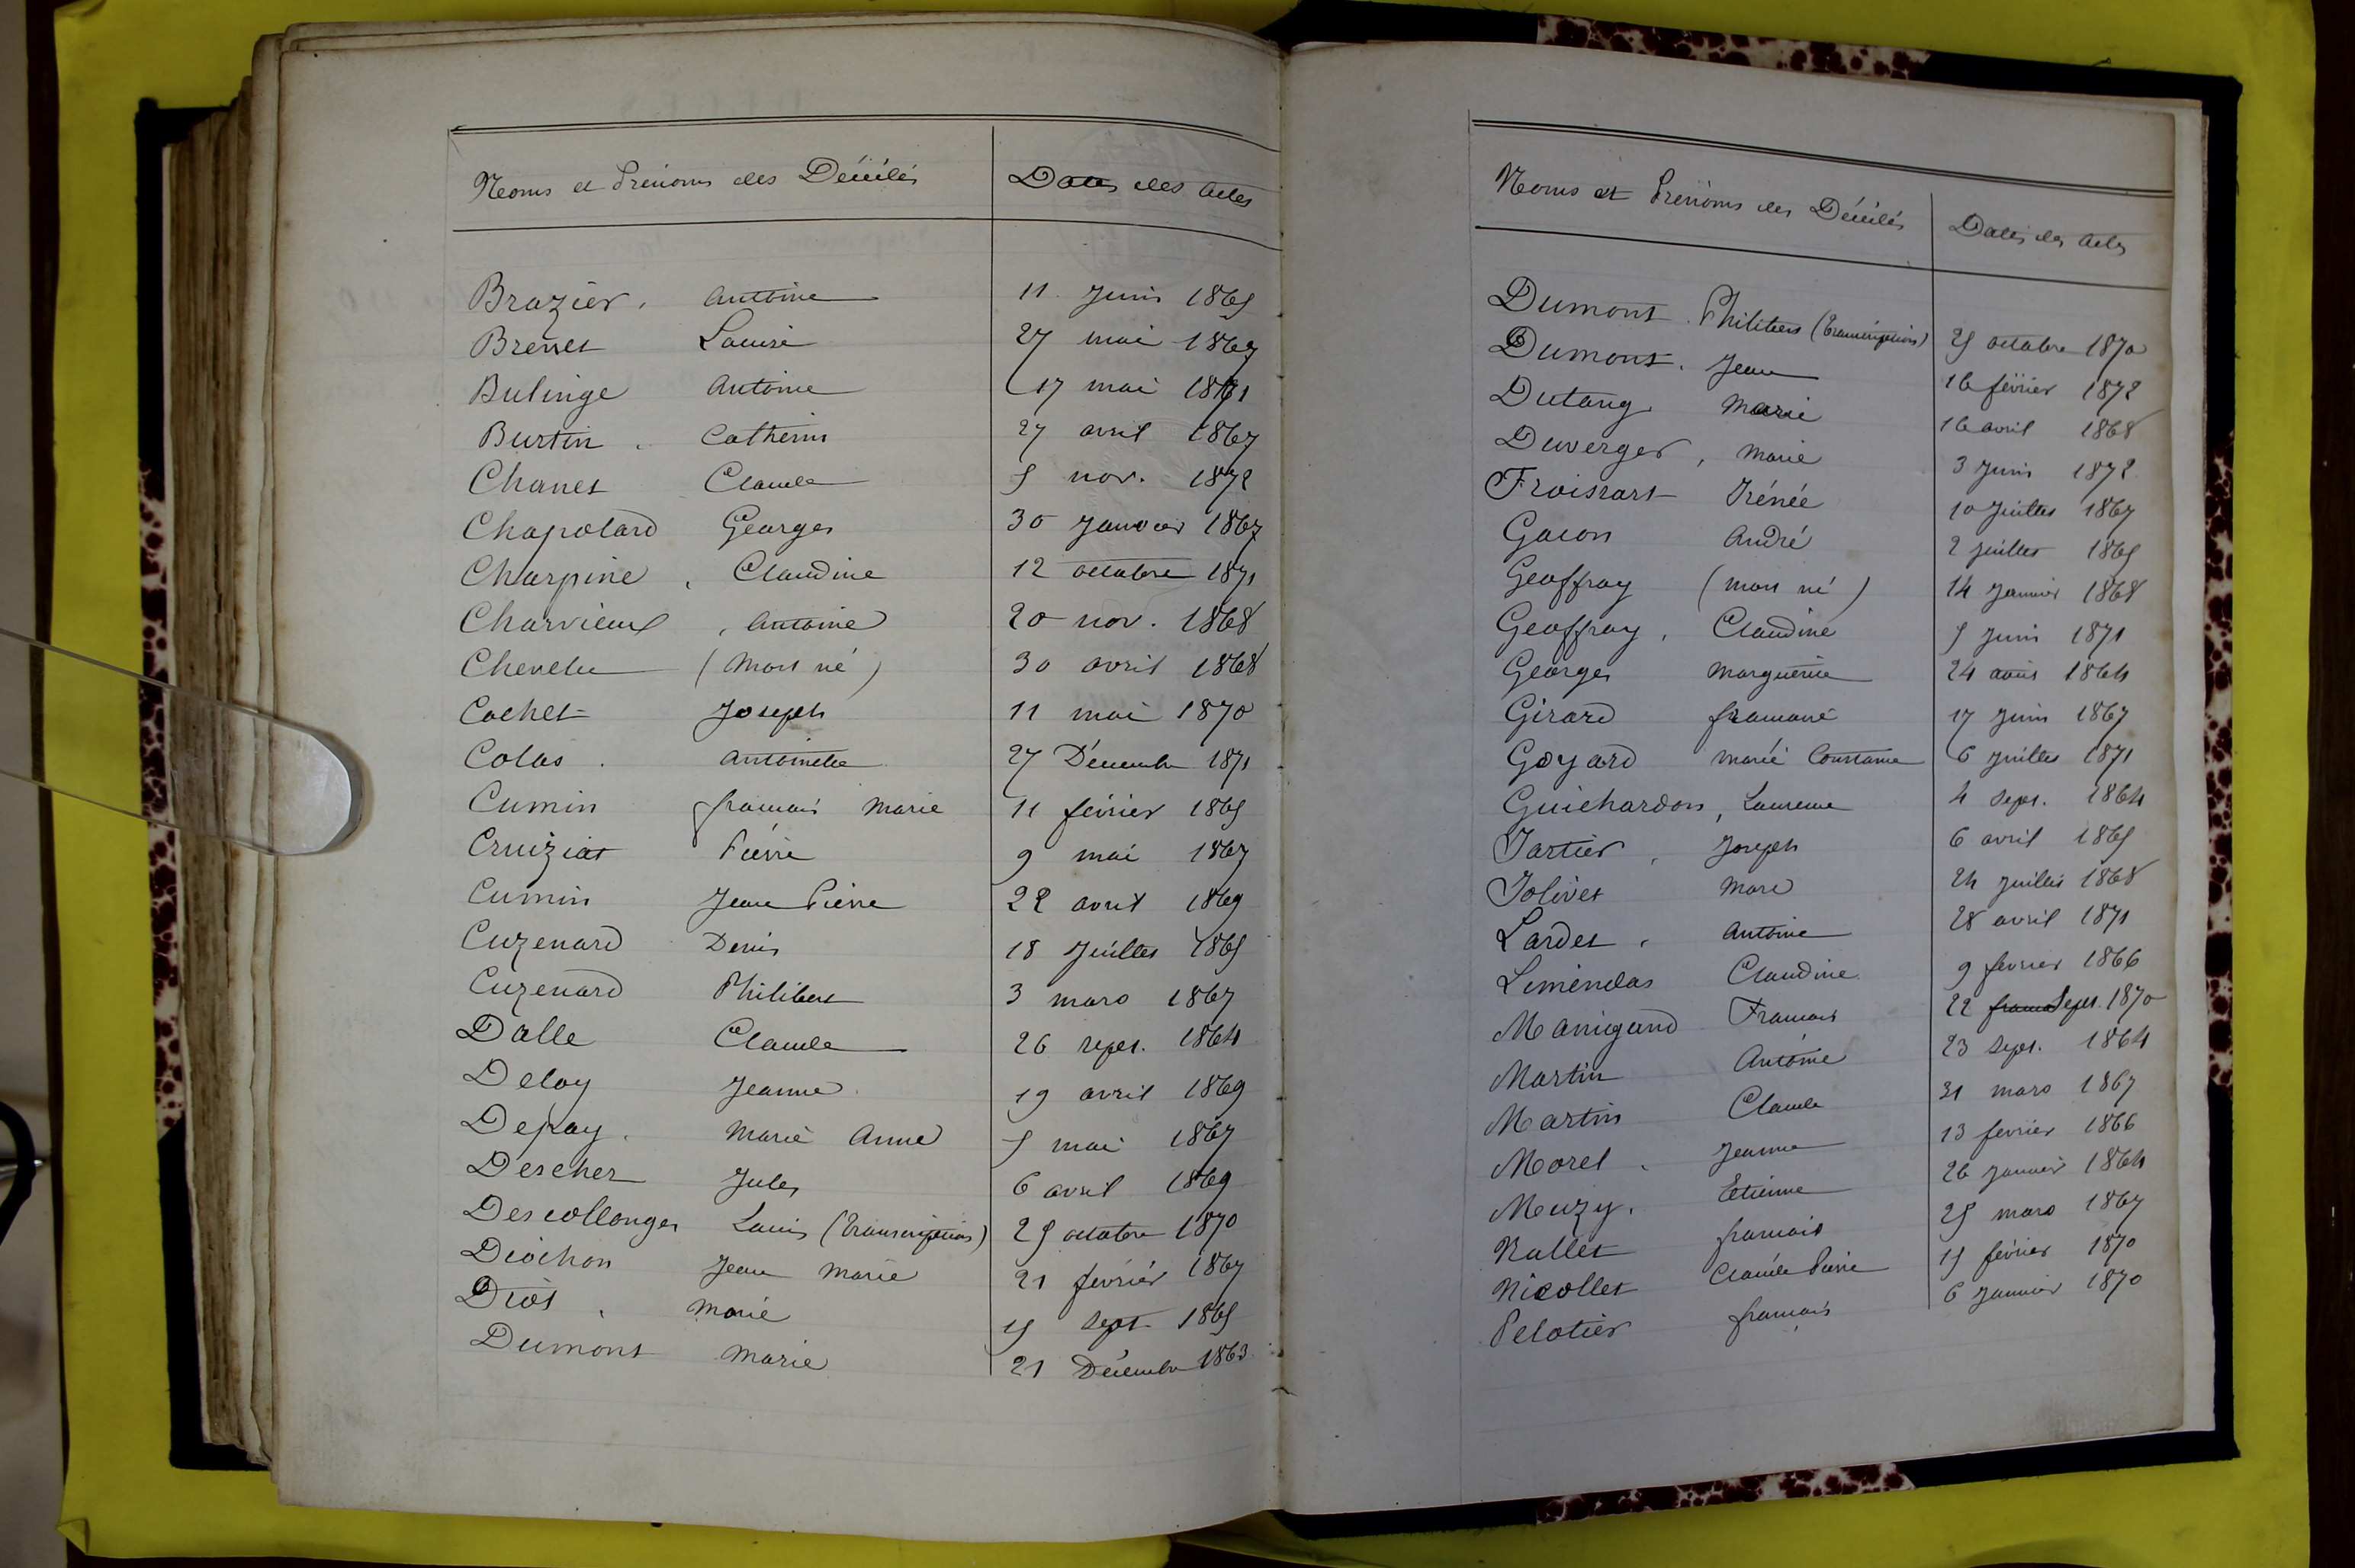 Noms et Prénoms des Décédés Dates des actes
Brazier. Antoine 11 Juin 1865
Brenet Louise 27 mai 1867
Bulinge Antoine 17 mai 1871
Burtin. Catherine 27 avril 1867
Chanet Claude 5 nov. 1872
Chapolard Georges 30 Janvier 1867
Charpine, Claudine 12 octobre 1871
Charvieux, Antoine 20 nov. 1868
Chevelu (Mort né) 30 avril 1868
Cochet Joseph 11 mai 1870
Colas. Antoinette 27 Décembre 1871
Cumin françois Marie 11 février 1865
Cruiziat Pierre 9 mai 1867
Cumin Jean Pierre 22 avril 1869
Cuzenard Denis 18 Juillet 1865
Cuzenard Philibert 3 mars 1867
Dalle Claude 26 sept. 1864
Deloy Jeanne 19 avril 1869
Depay. Marie Anne 5 mai 1867
Descher Jules 6 avril 1869
Descollonges Louis (Transcription) 25 octobre 1870
Diochon Jean Marie 21 février 1867
Diot. Marie 15 sept. 1865
Dumont Marie 21 Décembre 1863
Noms et Prénoms des Décédés Dates des actes
Dumont. Philibert (Transcription) 25 octobre 1870
Dumont. Jean 16 février 1872
Dutang Marie 16 avril 1868
Duverger, Marie 3 Juin 1872
Froissart Irénée 10 Juillet 1867
Gacon André 2 Juillet 1865
Geoffray (mort né) 14 Janvier 1868
Geoffray, Claudine 5 Juin 1871
Georges Marguerite 24 août 1864
Girard françoise 17 Juin 1867
Goyard Marie Constance 6 Juillet 1871
Guichardon, Laurence 4 Sept. 1864
Jartier, Joseph 6 avril 1865
Jolivet Marc 24 Juillet 1868
Lardet, Antoine 28 avril 1871
Leméndas Claudine 9 fevrier 1866
Manigand François 22 Sept. 1870
Martin Antoine 23 Sept. 1864
Martin Claude 31 mars 1867
Morel. Jeanne 13 fevrier 1866
Muzy. Etienne 26 Janvier 1864
Nallet françois 25 mars 1867
Nicollet Claude Pierre 15 février 1870
Pelotier françois 6 Janvier 1870